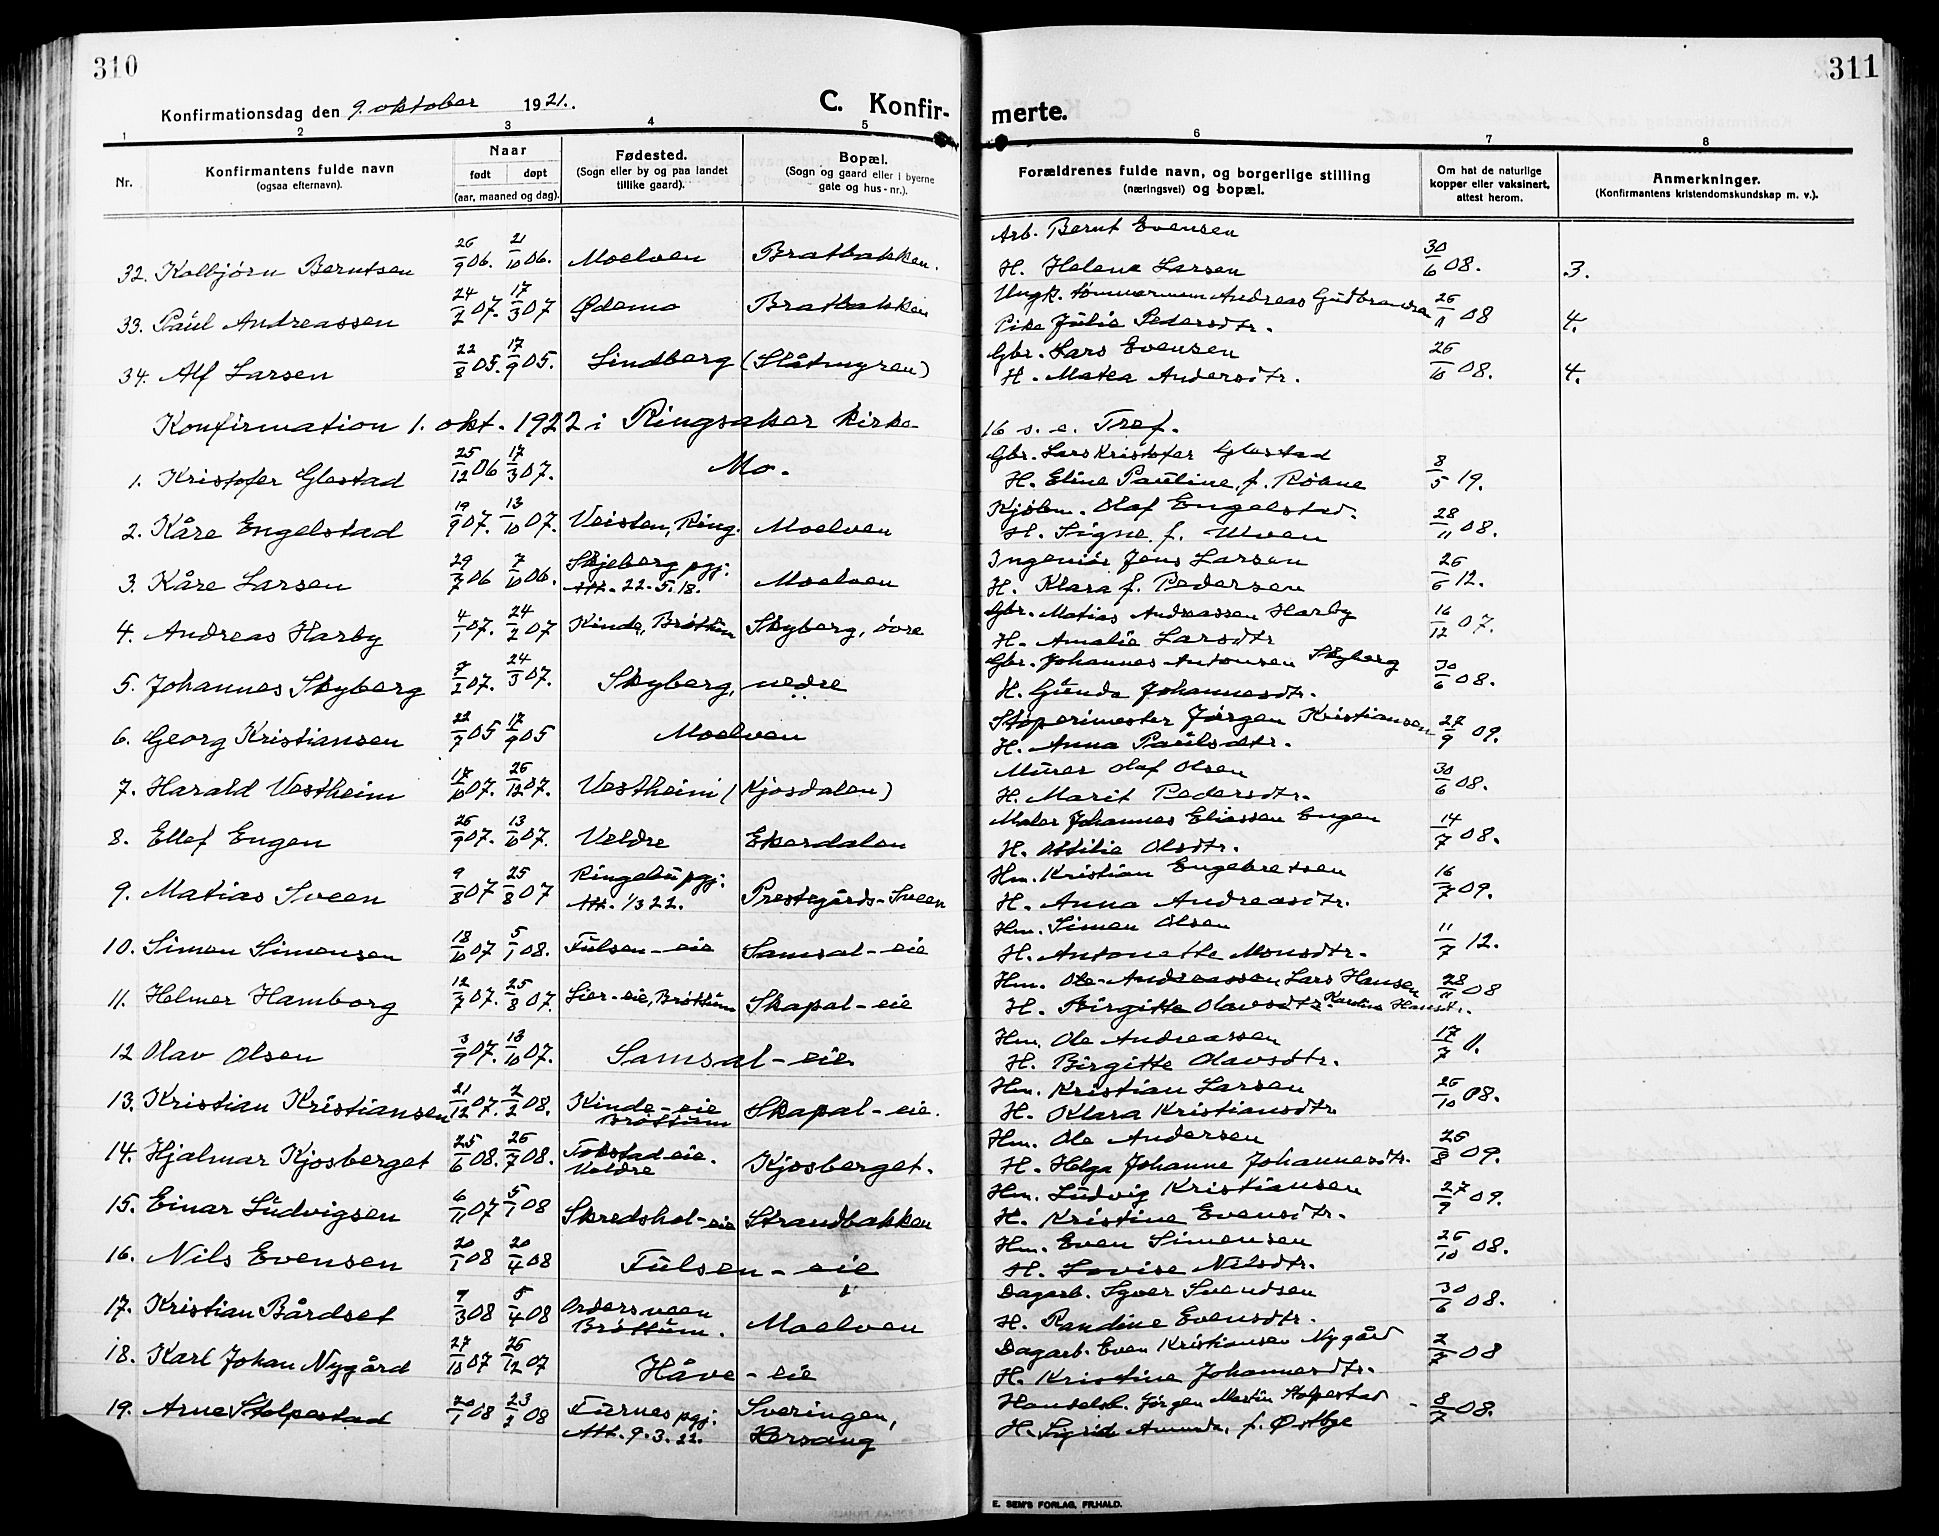 310
311
Konfirmationsdag den 9. oktober 1921.
C. Konfir-
merte.
1 2 3 4 5 6 7 8
Nr.
Konfirmantens fulde navn
(ogsaa efternavn).
Naar
født døpt
(aar, maaned og dag).
Fødested.
(Sogn eller by og paa landet
tillike gaard).
Bopæl.
(Sogn og gaard eller i byerne
gate og hus-nr.).
Forældrenes fulde navn, og borgerlige stilling
(næringsvei) og bopæl.
Om hat de naturlige
kopper eller vaksinert,
attest herom.
Anmerkninger.
(Konfirmantens kristendomskundskap m. v.).
Arb. Bernt Evensen
32. Kolbjørn Berntsen 26/9 06. 21/10 06. Moelven Bratbakken. H. Helene Larsen 30/6 08. 3.
Ungk. tømmermann Andreas Gudbrandsen
33. Paul Andreassen 24/2 07. 17/3 07 Ødemo Bratbakken Pike Julie Pedersdtr. 26/11 08 4.
Gbr. Lars Evensen
34. Alf Larsen 22/8 05. 17/9 05. Lindberg (Slåtmyren) H. Matea Andersdtr. 26/10 08. 4.
Konfirmation 1. okt. 1922 i Ringsaker kirke 16 s. e. Tref.
Gbr. Lars Kristofer Glestad
1. Kristofer Glestad 25/12 06 17/3 07. Mo. H. Eline Pauline, f. Røhne 8/5 19.
Kjøbm. Olaf Engelstad.
2. Kåre Engelstad 19/9 07. 13/10 07. Veisten, Ring. Moelven H. Signe f. Ulven 28/11 08.
Skjeberg pgj. Ingeniør Jens Larsen
3. Kåre Larsen 29/7 06 7/10 06. Att. 22.5.18. Moelven H. Klara f. Pedersen 26/6 12.
Gbr. Matias Andreassen Harby
4. Andreas Harby 4/1 07. 24/2 07 Kinde, Brøttum Skyberg, øvre H. Amalie Larsdtr 16/12 07.
Gbr. Johannes Antonsen Skyberg
5. Johannes Skyberg 7/2 07. 24/3 07. Skyberg, nedre H. Gunda Johannesdtr. 30/6 08.
Støperimester Jørgen Kristiansen
6. Georg Kristiansen 22/7 05 17/9 05 Moelven H. Anna Paulsdtr. 27/9 09.
Murer Olaf Olsen
7. Harald Vestheim 17/10 07. 26/12 07. Vestheim (Kjosdalen) H. Marit Pedersdtr. 30/6 08.
Maler Johannes Eliassen Engen
8. Ellef Engen 26/9 07. 13/10 07. Veldre Ekerdalen H. Ottilie Olsdtr. 14/7 08.
Ringebu pgj. Hm. Kristian Engebretsen
9. Matias Sveen 9/8 07 25/8 07 Att. 1/3 22. Prestegårds-Sveen H. Anna Andreasdtr. 16/7 09.
Hm. Simen Olsen
10. Simen Simensen 18/10 07 5/1 08. Fulsen-eie Samsal-eie H. Antonette Monsdtr. 11/7 12.
Hm. Ole Andreassen Lars Hansen
11. Helmer Hamborg 12/7 07. 25/8 07. Lier-eie, Brøttum Skapal-eie H. Birgitte Olavsdtr. Karoline Hansdtr. 28/11 08
Hm. Ole Andreassen
12 Olav Olsen 3/9 07. 13/10 07. Samsal-eie H. Birgitte Olavsdtr. 17/7
Hm. Kristian Larsen
13. Kristian Kristiansen 21/12 07. 2/2 08. Kinde-eie Brøttum Skapal-eie. H. Klara Kristiansdtr. 26/10 08.
Hm. Ole Andersen
14. Hjalmar Kjosberget 25/6 08. 26/7 08. Tokstad eie. Veldre Kjosberget. H. Helga Johanne Johannesdtr. 26/8 09.
Hm. Ludvig Kristiansen
15. Einar Ludvigsen 6/11 07 5/1 08 Skredshol-eie Strandbakken H. Kristine Evensdtr. 27/9 09.
Hm. Even Simensen
16. Nils Evensen 20/1 08 20/4 08 Fulsen-eie H. Lovise Nilsdtr. 26/10 08.
Dagarb. Syver Svendsen
17. Kristian Bårdset 7/3 08 5/4 08 Brøttum. Moelven H. Randine Evensdtr. 30/6 08.
Dagarb. Even Kristiansen Nygård
18. Karl Johan Nygård 27/10 07 26/12 07 Håve-eie H. Kristine Johannesdtr. 2/7 08
Handelsb. Jørgen Martin Stolpestad
19. Arne Stolpestad 20/1 08 23/2 08 Furnes pgj. Att. 9.3.22. Sveringen, H. Sigrid Amunda, f. Østbye 8/7 08.
E. SEM'S FORLAG, FR.HALD.